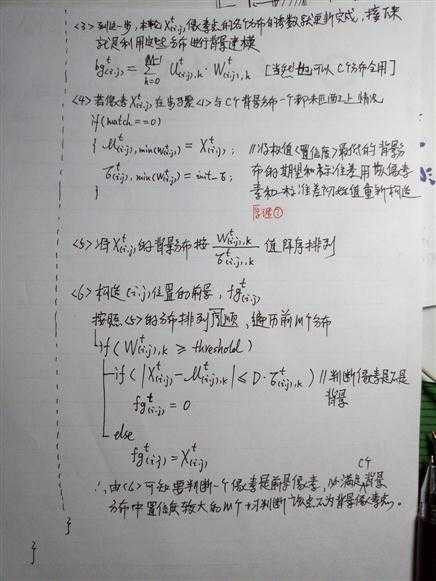 <3> 到这一步,本轮 X^t_(i·j) 像素点的各分布的诸数就更新完成,接下来
就是利用这些分布进行背景建模
bg^t_(i·j) = Σ^{M-1}_{k=0} U^t_(i·j),k · W^t_(i·j),k [当然也可以C个分布全用]
<4> 若像素 X^t_(i·j) 在步骤<1>与C个背景分布一个都未匹配上情况
if(match==0)
{ μ^t_(i·j),min(w(i·j)) = X^t_(i·j); //将权值<置信度>最低的背景分
σ^t_(i·j),min(w(i·j)) = init_σ; 布的期望和标准差用该像素
} 素和标准差初始值重新构造
原理①
<5> 将 X^t_(i·j) 的背景分布按 W^t_(i·j),k / σ^t_(i·j),k 值降序排列
<6> 构造(i,j)位置的前景, fg^t_(i·j)
按照<5>的分布排列,遍历前M个分布
if(W^t_(i·j),k ≥ threshold)
if(|X^t_(i·j) - μ^t_(i·j),k| ≤ D·σ^t_(i·j),k) //判断像素是不是
背景
fg^t_(i·j) = 0
else
fg^t_(i·j) = X^t_(i·j)
∴ 由<6>可知要判断一个像素是前景像素, 满足C个背景
分布中置信度较大的M个才判断该点不为背景像素点。
}
}